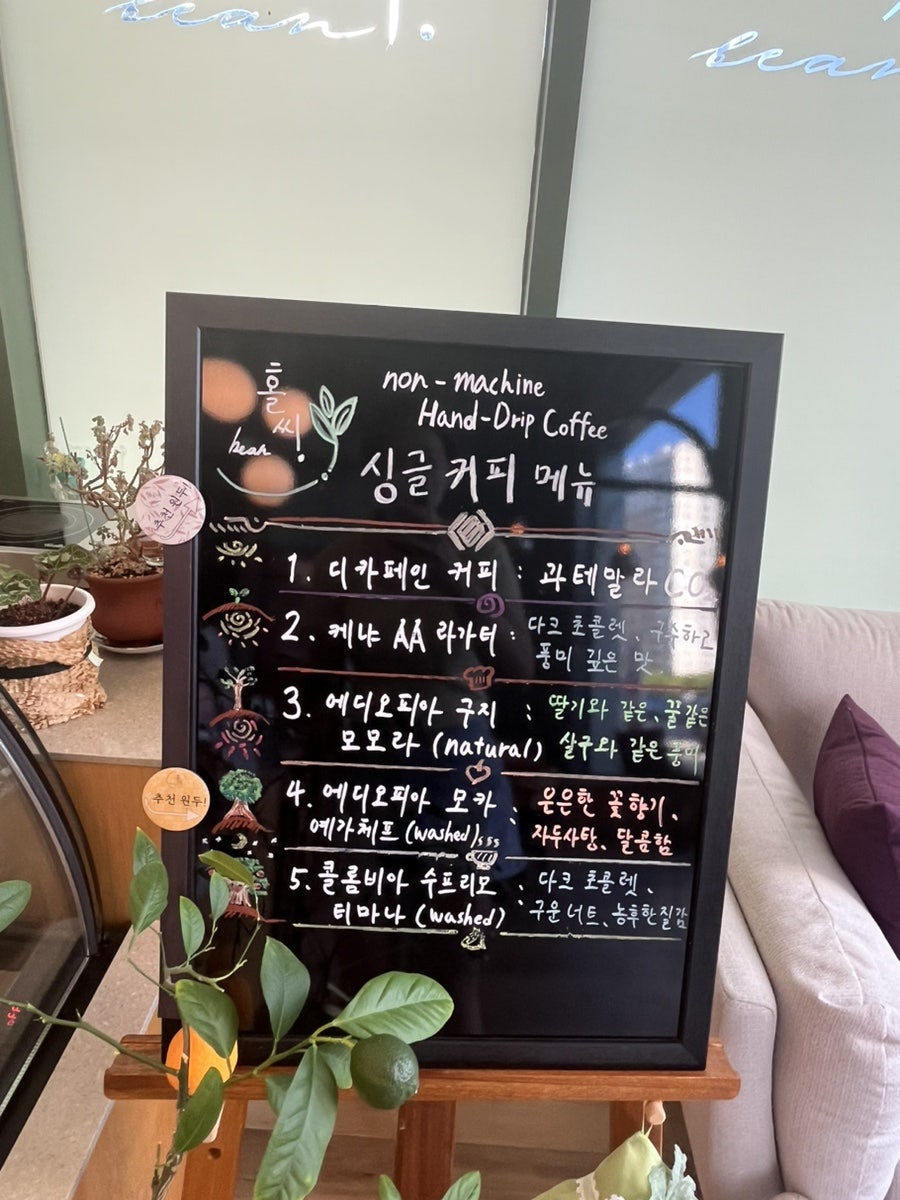 bean!.
bean
홀
씨!
bean
non-machine
Hand-Drip Coffee
싱글 커피 메뉴
추천 원두
1. 디카페인 커피 : 과테말라 CO
2. 케냐 AA 라가터 : 다크 초콜렛, 구수하고
풍미 깊은 맛
3. 에디오피아 구지 : 딸기와 같은, 꿀같은
모모라 (natural) 살구와 같은 풍미
추천 원두!
4. 에디오피아 모카 : 은은한 꽃향기,
예가체프 (washed) 자두사탕, 달콤함
5. 콜롬비아 수프리모 : 다크 초콜렛,
티마나 (washed) 구운 너트, 농후한 질감